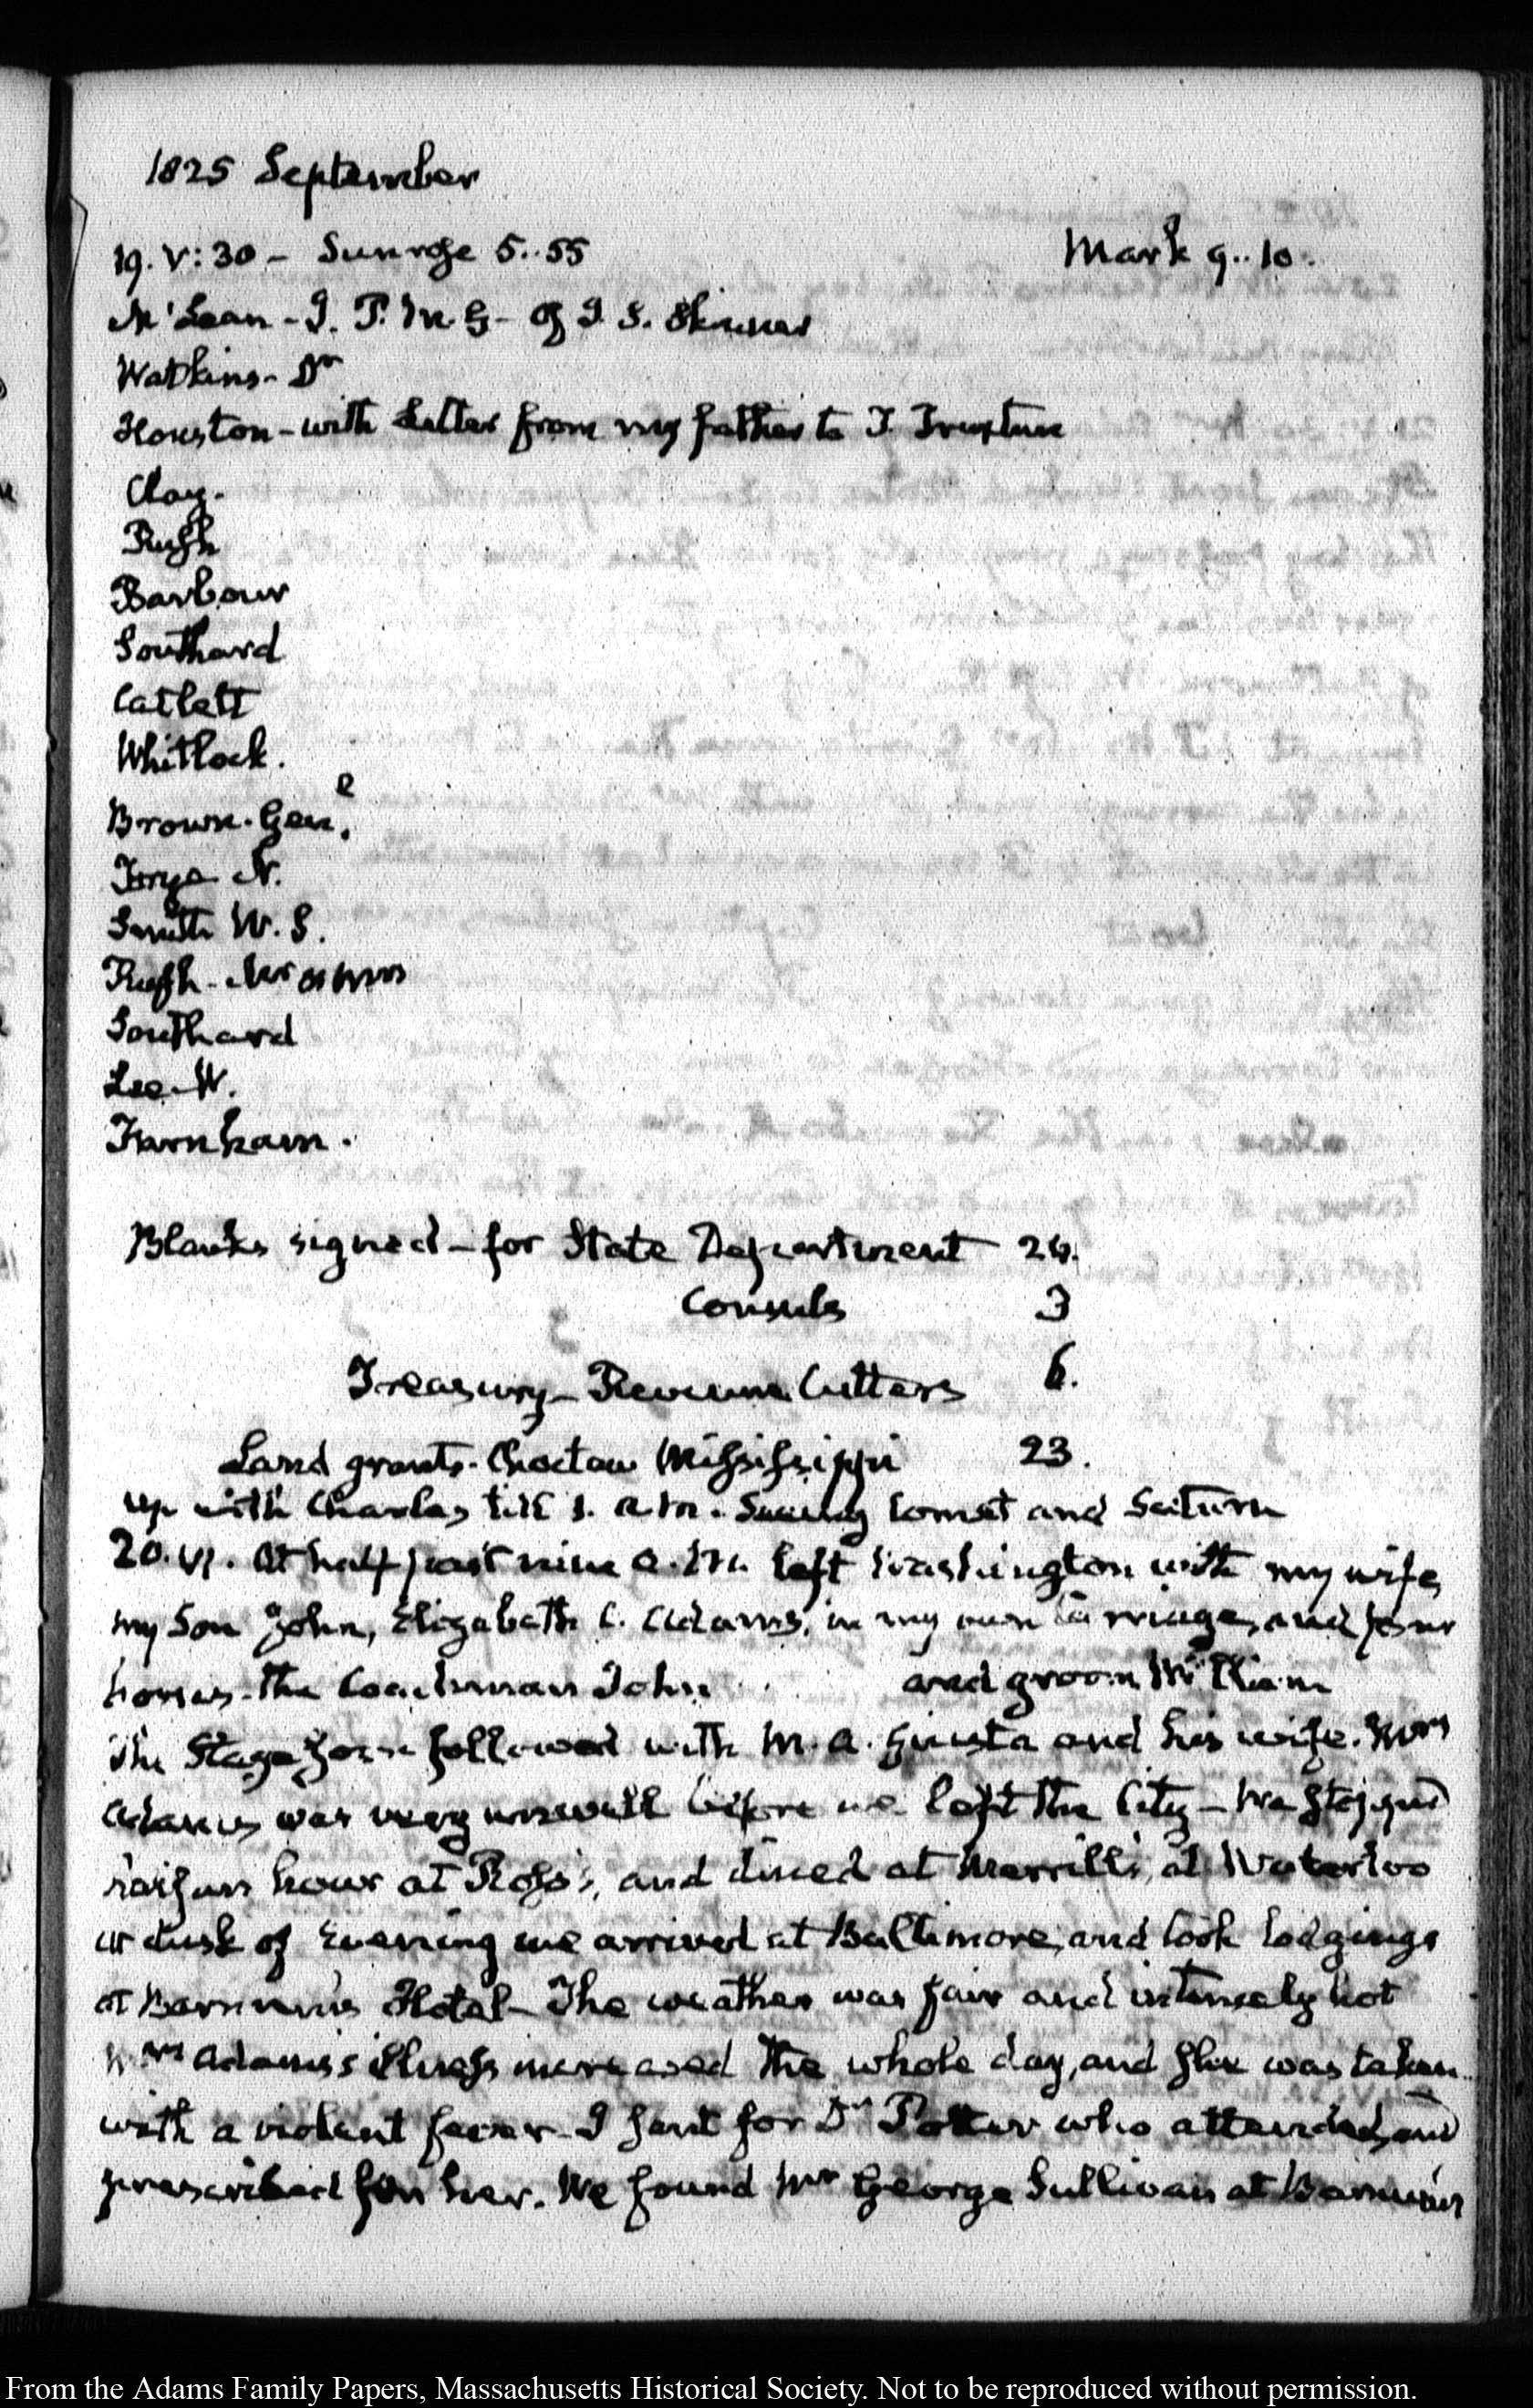 1825 September
19. V:30 – Sunrise 5..55 Mark 9..10.
McLean – J. P.M.G – of J. S. Skinner
Watkins – Dr
Houston – with Letter from my father to T. Truxtun
Clay.
Rush
Barbour
Southard
Catlett
Whitlock.
Brown. Genl.
Frye N.
Smith W. S.
Rush – Mr & Mrs
Southard
Lee – W.
Farnham.
Blanks signed – for State Department 24.
Consuls 3
Treasury – Revenue Cutters 6.
Land grants – Choctaw Mississippi 23.
up with Charles till 1. a.m. Seeing Comet and Saturn
20. VI. At half past nine a.m. left Washington with my wife,
my Son John, Elizabeth C. Adams, in my own Carriage, and four
horses – the Coachman John and groom William
The Stage followed with M. A. Giusta and his wife. Mrs
Adams was very unwell before we left the City – We stopped
half an hour at Ross's, and dined at Merrill's, at Waterloo
at dusk of Evening we arrived at Baltimore, and took lodgings
at Barnum's Hotel – The weather was fair and intensely hot
Mrs Adams's illness increased the whole day, and she was taken
with a violent fever – I sent for Dr Potter who attended, and
prescribed for her. We found Mr George Sullivan at Barnum's
From the Adams Family Papers, Massachusetts Historical Society. Not to be reproduced without permission.